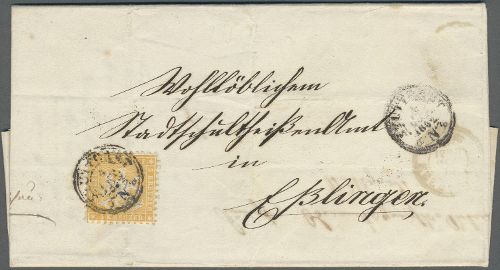 Wohllöblichem
Stadtschultheißen Amt
in
Eßlingen.